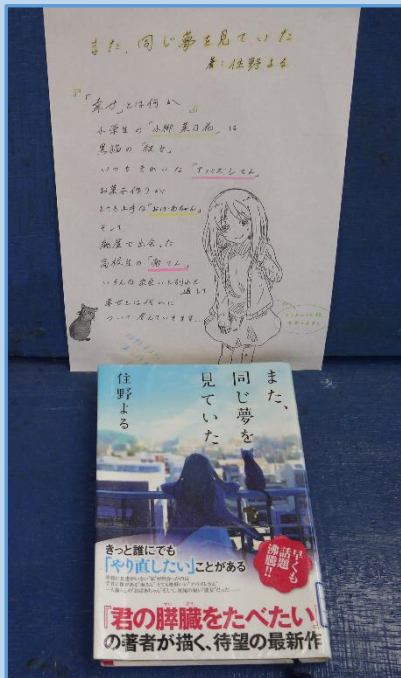 また、同じ夢を見ていた
著:住野よる
「幸せ」とは何か
小学生の「小柳 奈ノ花」は
黒猫の「彼女」
いつもきれいな「アバズレさん」
お菓子作りが
とても上手な「おばあちゃん」
そして
廃屋で出会った
高校生の「南さん」
いろんな出会いと別れを
通して
幸せとは何かに
ついて考えていきます…
また、
同じ夢を
見ていた
住野よる
きっと誰にでも
「やり直したい」ことがある
早くも
話題
沸騰!!
『君の膵臓をたべたい』
の著者が描く、待望の最新作